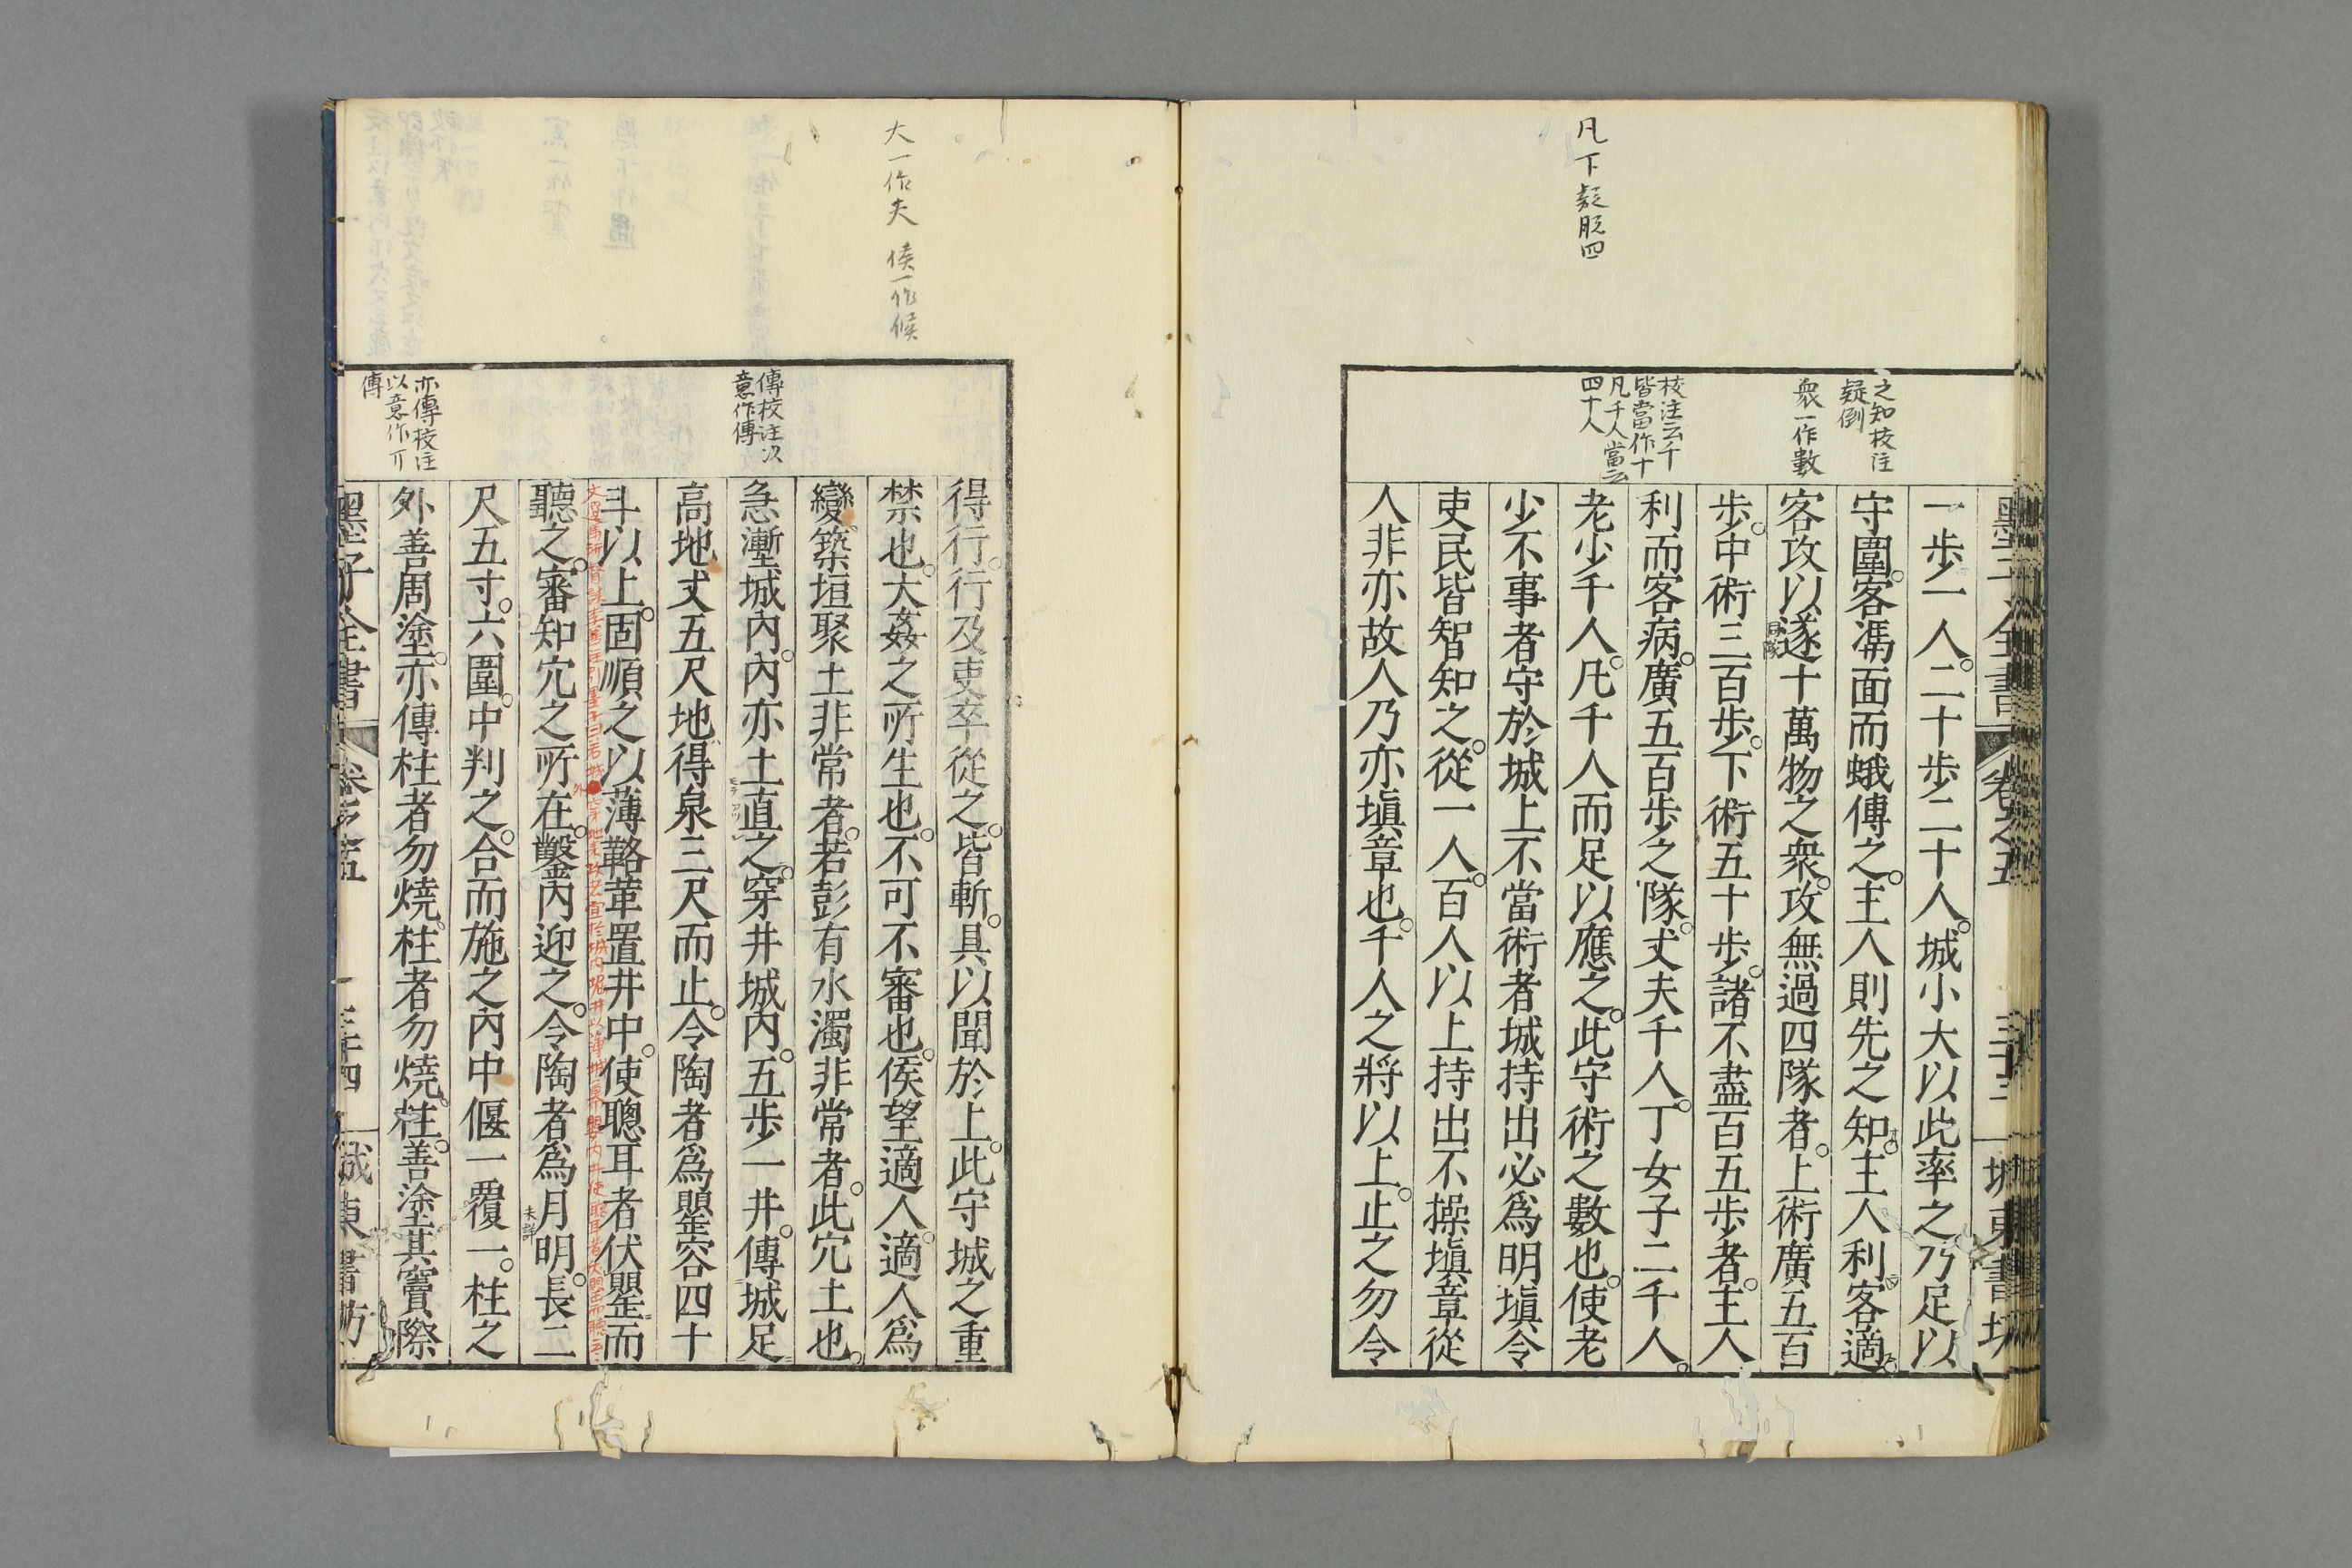 凡下疑脱四
之知校注
疑倒
衆一作數
校注云千
皆當作十
凡千人當云
四十人
一歩一人二十歩二十人城小大以此率之乃足以
守圍客馮面而蛾傳之主人則先之知主人利客適
客攻以遂十萬物之衆攻無過四隊者上術廣五百
歩中術三百歩下術五十歩諸不盡百五歩者主人
利而客病廣五百歩之隊丈夫千人丁女子二千人
老少千人凡千人而足以應之此守術之數也使老
少不事者守於城上不當術者城持出必爲明塡令
吏民皆智知之從一人百人以上持出不操塡章從
人非亦故人乃亦塡章也千人之將以上止之勿令
大一作夫 侯一作候
傳校注以
意作傅
亦傳校注
以意作丌
傅
得行行及吏卒從之皆斬具以聞於上此守城之重
禁也大姦之所生也不可不審也侯望適人適人爲
變築垣聚土非常者若彭有水濁非常者此穴土也
急壍城内内亦土直之穿井城内五歩一井傳城足
高地丈五尺地得泉三尺而止令陶者爲罌容四十
斗以上固順之以薄䩞革置井中使聰耳者伏罌而
聽之審知穴之所在鑿内迎之令陶者爲月明長二
未詳
尺五寸六圍中判之合而施之内中偃一覆一柱之
外善周塗亦傳柱者勿燒柱者勿燒柱善塗其竇際
墨子全書 卷之五 三十四 城東書坊